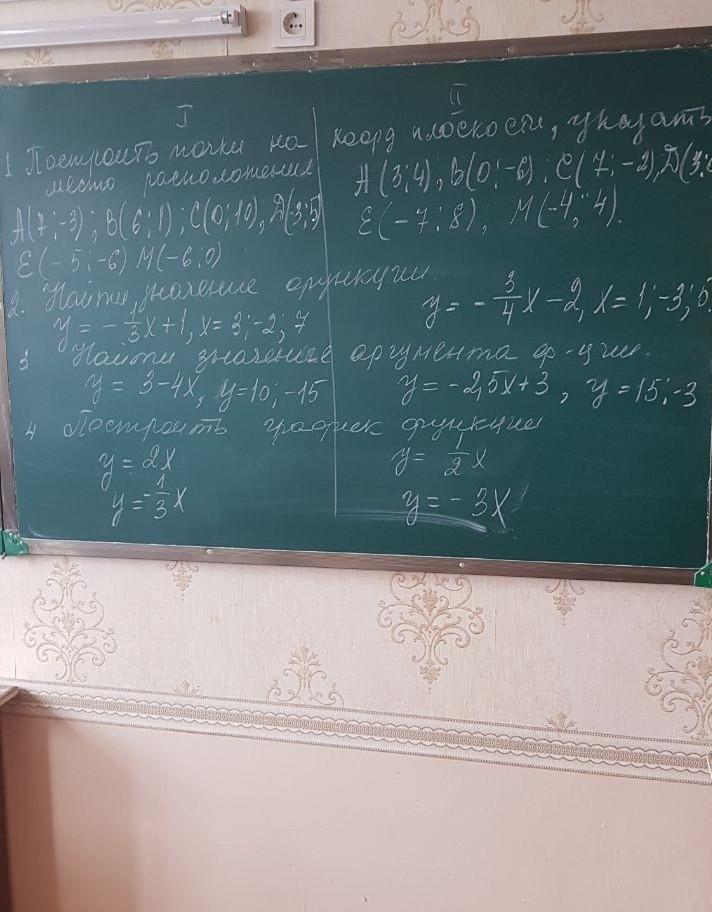 I
II
1 Построить точки на коорд плоскости, указать
место расположения
А(7;-3); В(6;1); С(0;10), Д(-3;5)
Е(-5;-6) М(-6;0)
А(3;4), В(0;-6); С(7;-2), Д(
Е(-7;8); М(-4; 4).
2. Найти значение функции.
y = -1/3x+1, x=3;-2; 7
y = -3/4x-2, x=1;-3;5.
3 Найти значение аргумента ф-ции.
y = 3-4x, y=10;-15
y = -2,5x+3, y=15;-3
4 Построить график функции
y = 2x
y = -1/3x
y = 1/2x
y = -3x